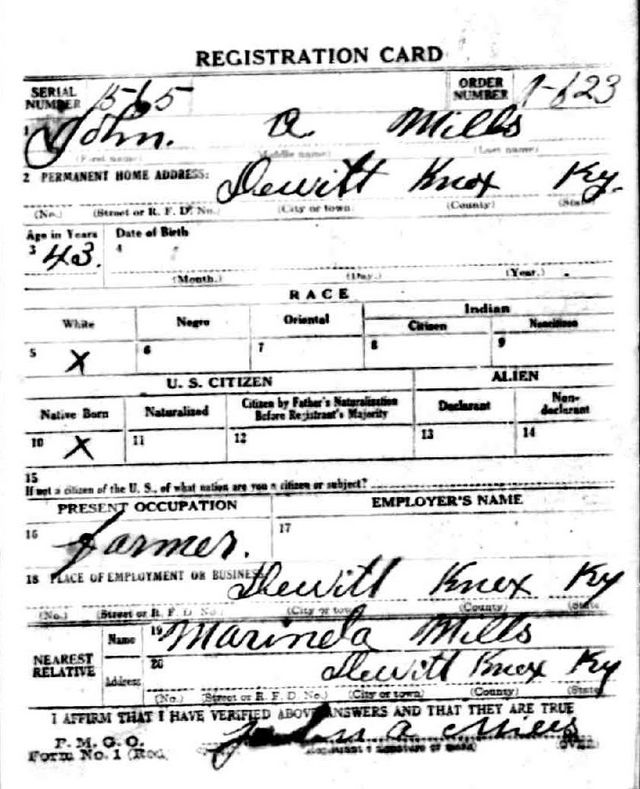 REGISTRATION CARD
SERIAL NUMBER 1565 ORDER NUMBER
1 John. A Mills
(First name) (Middle name) (Last name)
2 PERMANENT HOME ADDRESS: Dewitt Knox Ky.
(No.) (Street or R. F. D. No.) (City or town) (County) (State)
Age in Years Date of Birth
3 43. 4
(Month.) (Day.) (Year.)
RACE
White Negro Oriental Indian
Citizen Noncitizen
5 X 6 7 8 9
U. S. CITIZEN ALIEN
Native Born Naturalized Citizen by Father's Naturalization Before Registrant's Majority Declarant Non-declarant
10 X 11 12 13 14
15
If not a citizen of the U. S., of what nation are you a citizen or subject?
PRESENT OCCUPATION EMPLOYER'S NAME
16 Farmer. 17
18 PLACE OF EMPLOYMENT OR BUSINESS Dewitt Knox Ky
(No.) (Street or R. F. D. No.) (City or town) (County) (State
NEAREST RELATIVE
Name 19 Marinda Mills
Address 20 Dewitt Knox Ky
(No.) (Street or R. F. D. No.) (City or town) (County) (State)
I AFFIRM THAT I HAVE VERIFIED ABOVE ANSWERS AND THAT THEY ARE TRUE
P. M. G. O.
Form No. 1 (Red) John A Mills